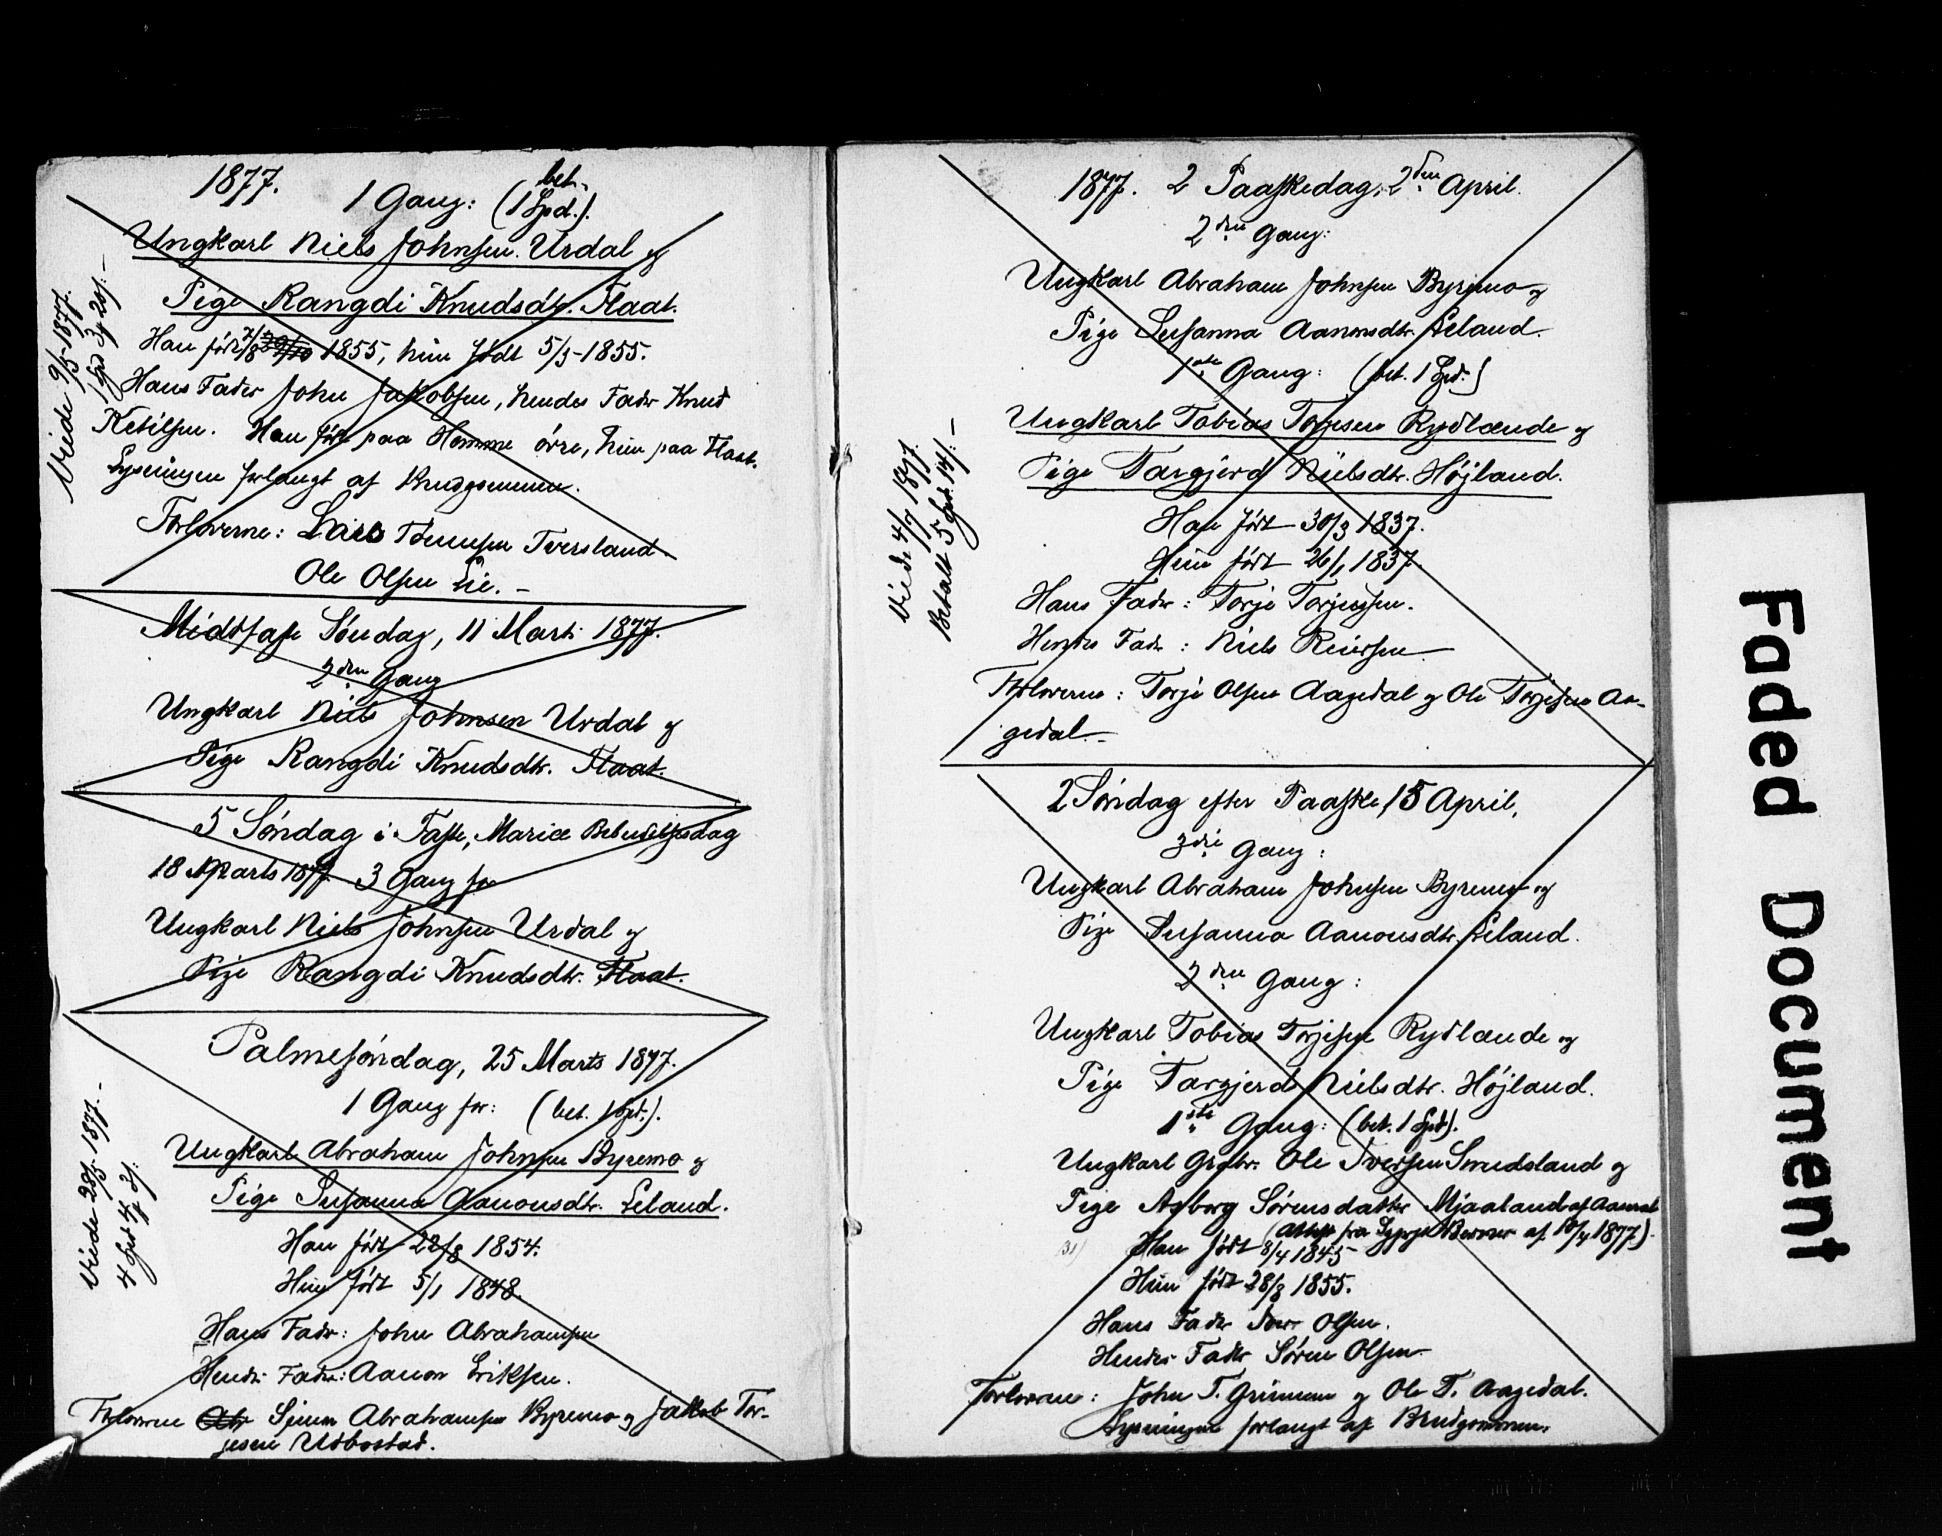 1877.
1 Gang: (bet. 1 Spd.).
Ungkarl Niels Johnsen Urdal og
Pige Rangdi Knudsdtr. Flaat.
Han født 7/8 1855, hun født 5/5-1855.
Hans Fader John Jakobsen, hendes Fader Knud
Ketilsen. Han født paa Homme øvre, hun paa Flaat.
Lysningen forlangt af Brudgommen.
Forloverne: Lars Tommesen Tversland
Ole Olsen Lie. –
Viede 9/5-1877.
1 Spd 3 20 –
Midtfaste Søndag, 11 Marts 1877.
2den Gang
Ungkarl Niels Johnsen Urdal og
Pige Rangdi Knudsdtr. Flaat.
5 Søndag i Faste, Mariæ Bebudelsesdag
18 Marts 1877. 3 Gang for
Ungkarl Niels Johnsen Urdal og
Pige Rangdi Knudsdtr. Flaat.
Palmesøndag, 25 Marts 1877.
1 Gang for: (bet. 1 Spd.).
Ungkarl Abraham Johnsen Byremo og
Pige Susanna Aanonsdtr. Eeland.
Han født 22/8 1854.
Hun født 5/1 1848.
Hans Fader: John Abrahamsen
Hendes Fader: Aanon Eriksen.
Forloverne Abr Simen Abrahamsen Byremo og Jakob Tor-
jesen Udbostad.
Viede 28/5 1877. –
4 Spd 4
1877. 2 Paaskedag, 2den April.
2den Gang:
Ungkarl Abraham Johnsen Byremo og
Pige Susanna Aanonsdtr. Eeland.
1ste Gang: (bet. 1 Spd.)
Ungkarl Tobias Torjesen Rydlænde og
Pige Targjerd Nielsdtr. Højland.
Han født 30/3 1837.
Hun født 26/1 1837.
Hans Fader: Torje Torjussen.
Hendes Fader: Niels Reiersen
Forloverne: Torje Olsen Aagedal og Ole Torjesen Aa-
gedal. –
Viede 4/7 1877.
Betalt 5 Spd. 14 –
2 Søndag efter Paaske, 15 April.
3die Gang:
Ungkarl Abraham Johnsen Byremo og
Pige Susanna Aanonsdtr. Eeland.
2den Gang:
Ungkarl Tobias Torjesen Rydlænde og
Pige Targjerd Nielsdtr. Højland.
1ste Gang: (bet. 1 Spd).
Ungkarl Grdbr. Ole Iversen Smudsland og
Pige Asborg Sørensdatter Mjaaland af Aaseral
(Attest fra Sygepl. Berner af 10/4 1877).
Han født 8/4 1845
Hun født 28/8 1855.
Hans Fader Iver Olsen.
Hendes Fader Søren Olsen
Forloverne: John T. Grimme og Ole T. Aagedal.
Lysningen forlangt af Brudgommen.
Faded Document